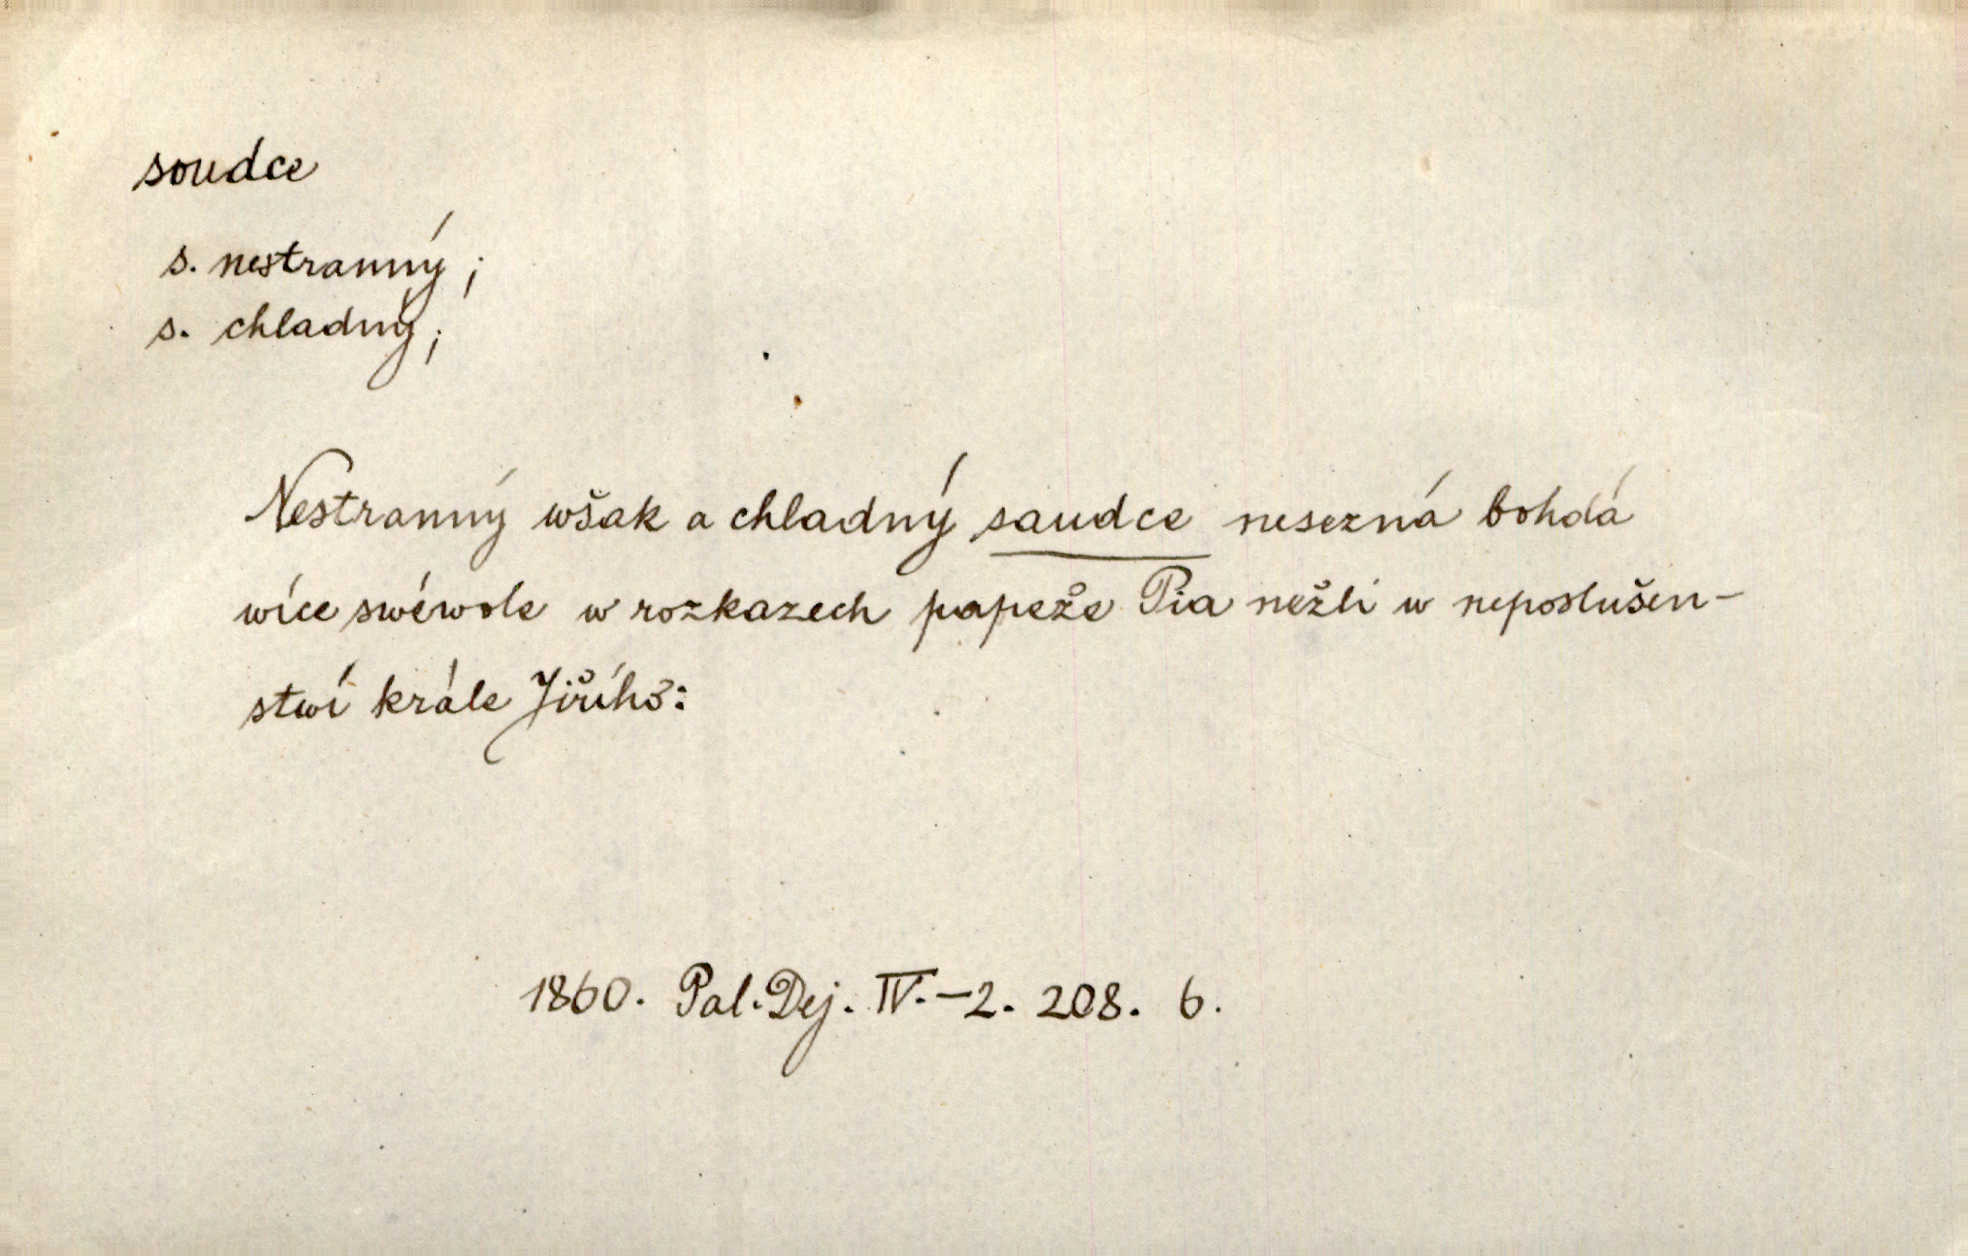 soudce
s. nestranný;
s. chladný;
Nestranný wšak a chladný saudce nesezná bohdá
wíce swéwole w rozkazech papeže Pia nežli w neposlušen-
stwí krále Jiřího:
1860. Pal. Dej. IV.-2. 208. 6.